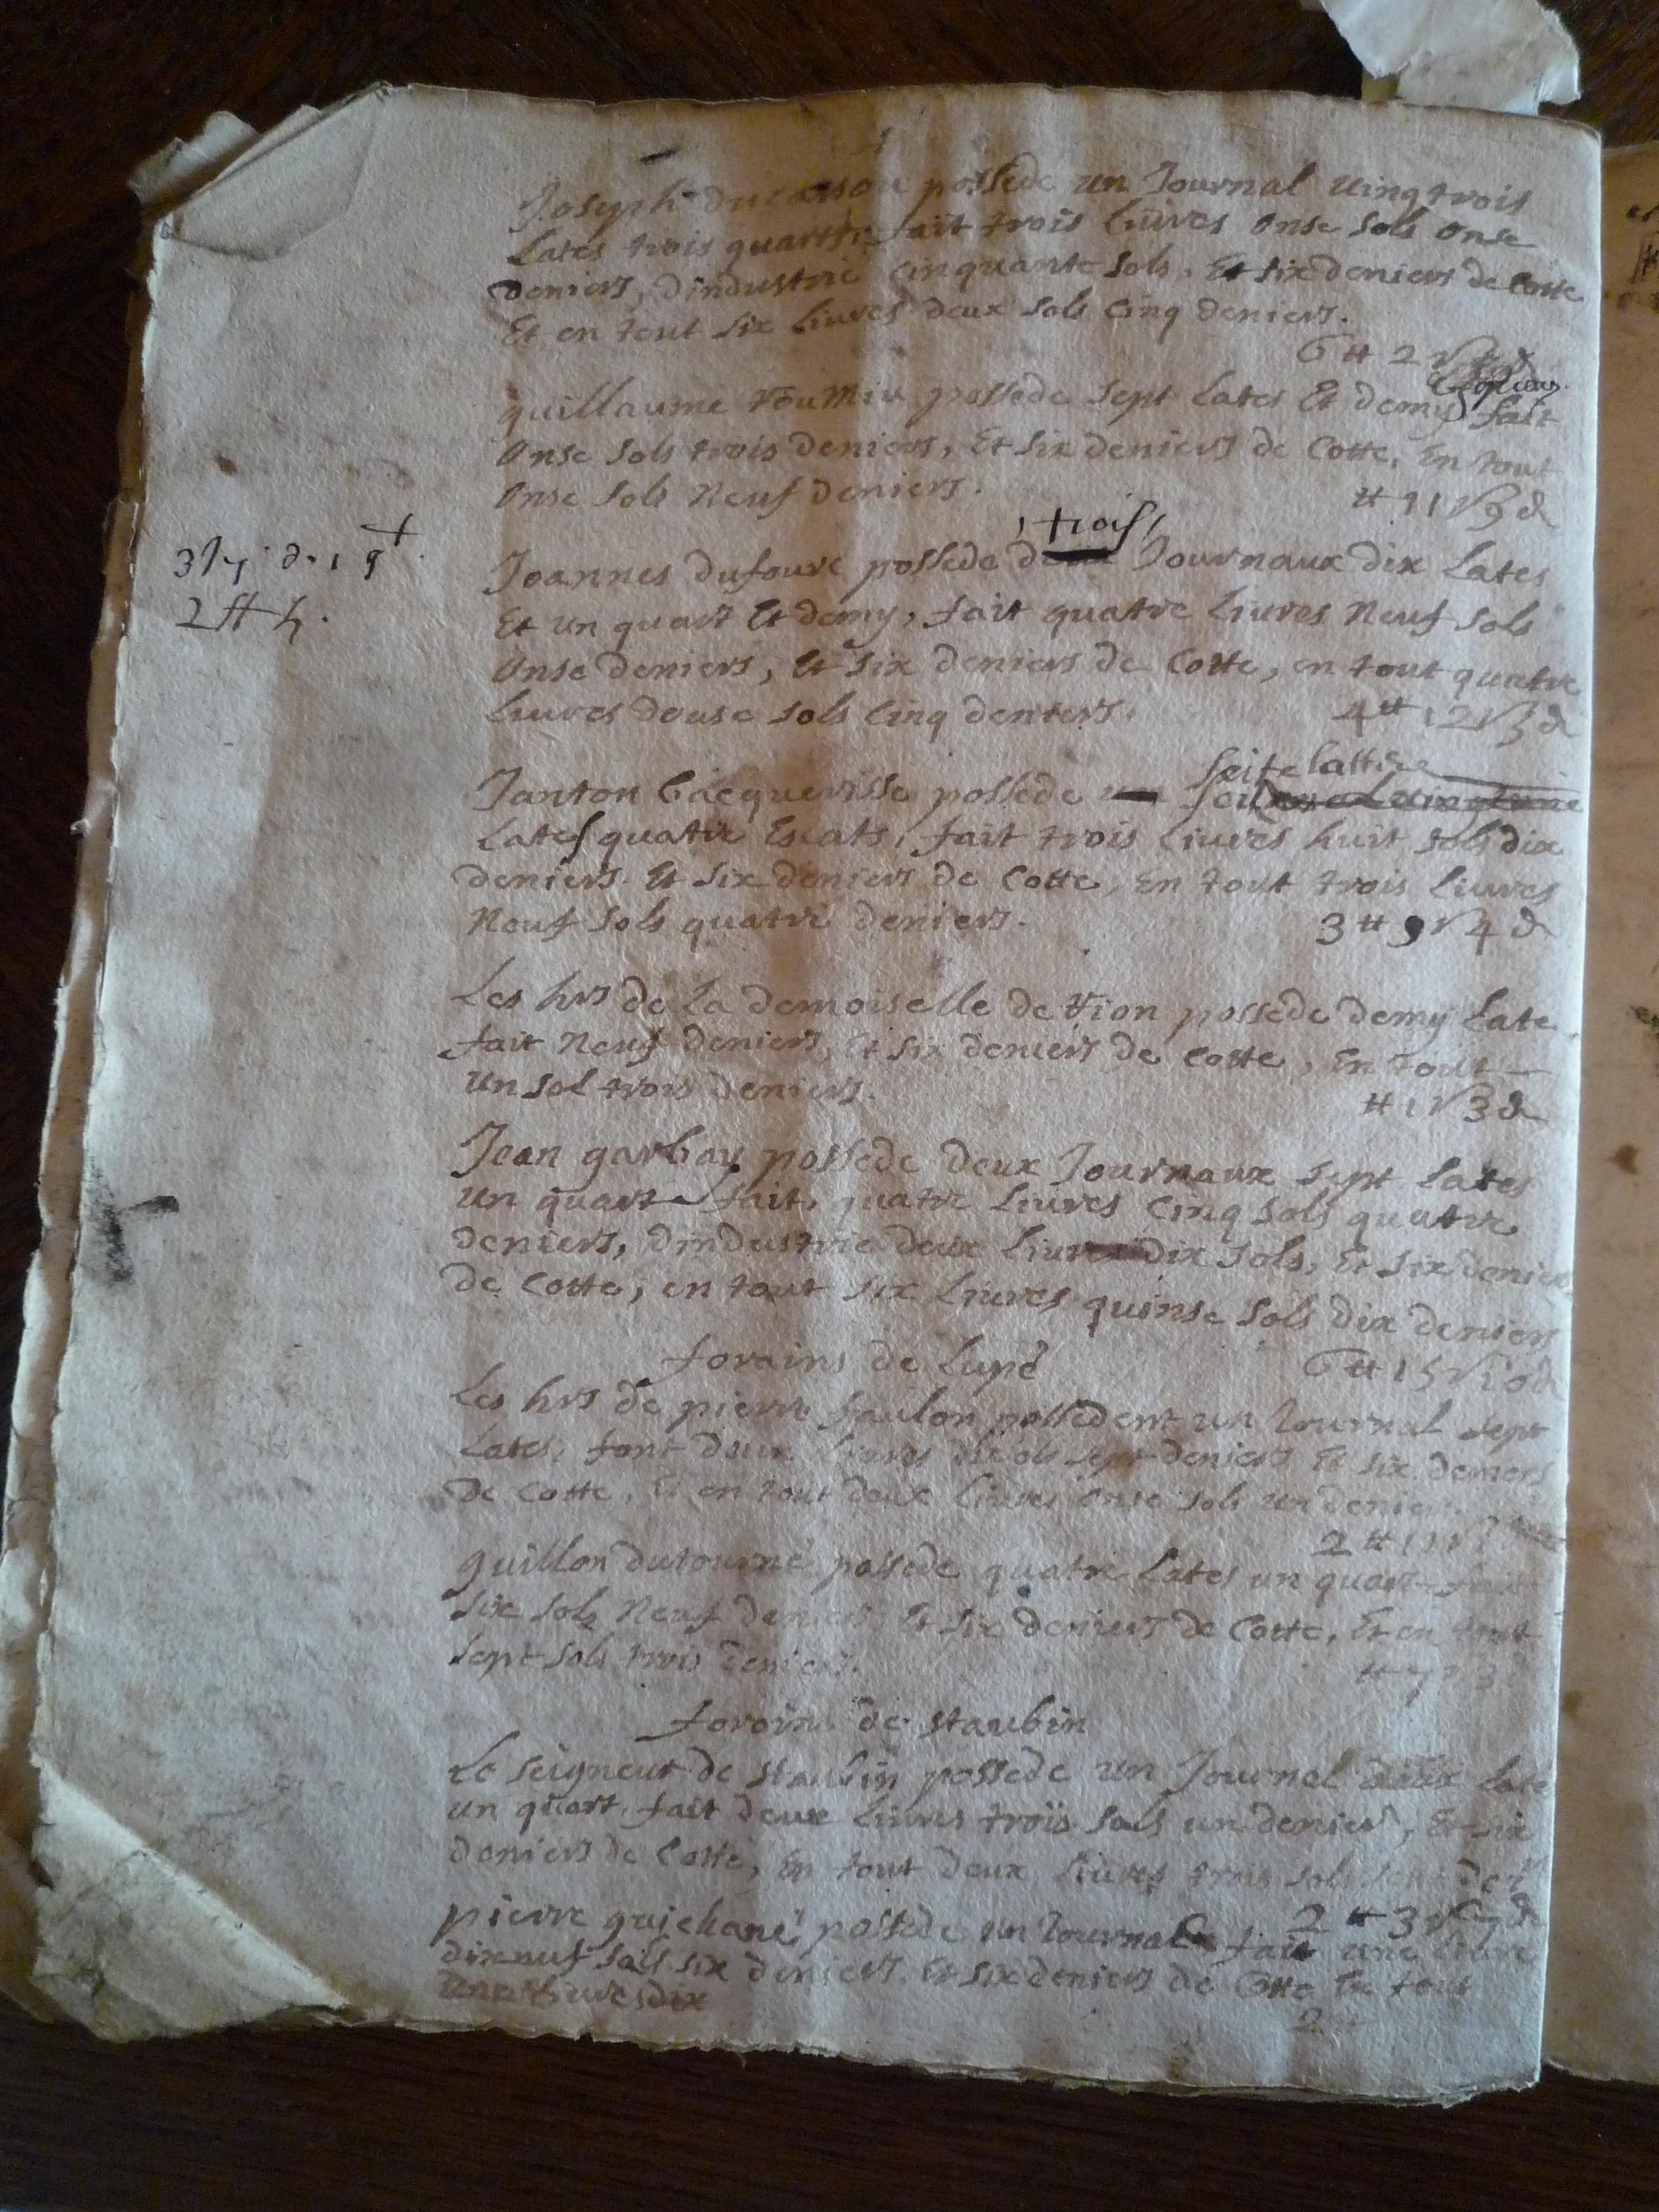 Joseph ducassou possede un Journal uingtrois
Lates trois quartz, fait trois Liures onse sols onse
deniers, dindustrie Cinquante sols, Et six deniers de Cotte
Et en tout six Liures deux sols Cinq deniers.
6 ₶ 2 s
guillaume possede sept Lates Et demy fait
onse sols trois deniers, Et six deniers de Cotte, En tout
onse sols Neuf deniers.
₶ 11 s 9 d
trois
Joannes dufourc possede deux Journaux dix Lates
Et un quart Et demy, fait quatre Liures Neuf sols
onse deniers, Et six deniers de Cotte, en tout quatre
Liures douse sols Cinq deniers.
4 ₶ 12 s 5 d
2 ₶ h.
Janton Cacquerisse possede
Lates quatre Escats, fait trois Liures huit sols dix
deniers. Et six deniers de Cotte, En tout trois Liures
Neuf sols quatre deniers.
3 ₶ 9 s 4 d
Les hrs de La demoiselle de possede demy Late
fait Neuf deniers, Et six deniers de Cotte, En tout
un sol trois deniers.
₶ 1 s 3 d
Jean garbay possede deux Journaux sept Lates
un quart fait, quatre Liures Cinq sols quatre
deniers, dindustrie deux Liures dix sols, Et six deniers
de Cotte, en tout six Liures quinse sols dix deniers
6 ₶ 15 s 10 d
forains de Lupé
Les hrs de pierre faulon possedent un Journal sept
Lates, font deux Liures dix sols sept deniers Et six deniers
de Cotte, Et en tout deux Liures onse sols un denier.
2 ₶ 11 s 1
guillon dutourné possede quatre Lates un quart fait
six sols Neuf deniers Et six deniers de Cotte, Et en tout
sept sols trois deniers.
₶ 7 s 3
forains de staubin
Le seigneur de staubin possede un Journal deux Late
un quart, fait deux Liures trois sols un denier, Et six
deniers de Cotte, En tout deux Liures trois sols sept der
2 ₶ 3 s 7 d
pierre guichané possede un Journal fait une Liure
dixneuf sols six deniers. Et six deniers de Cotte En tout
2 ₶